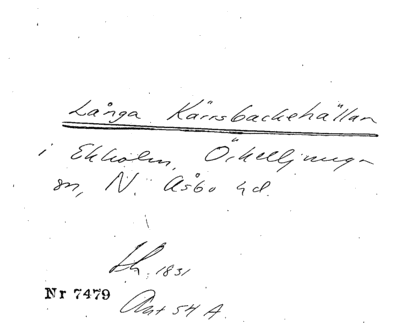 Långa Kärrsbackehällan
i Ekholm, Örkelljunga
sn, N. Åsbo hd.
1831
Nr 7479
Ant 54 A.